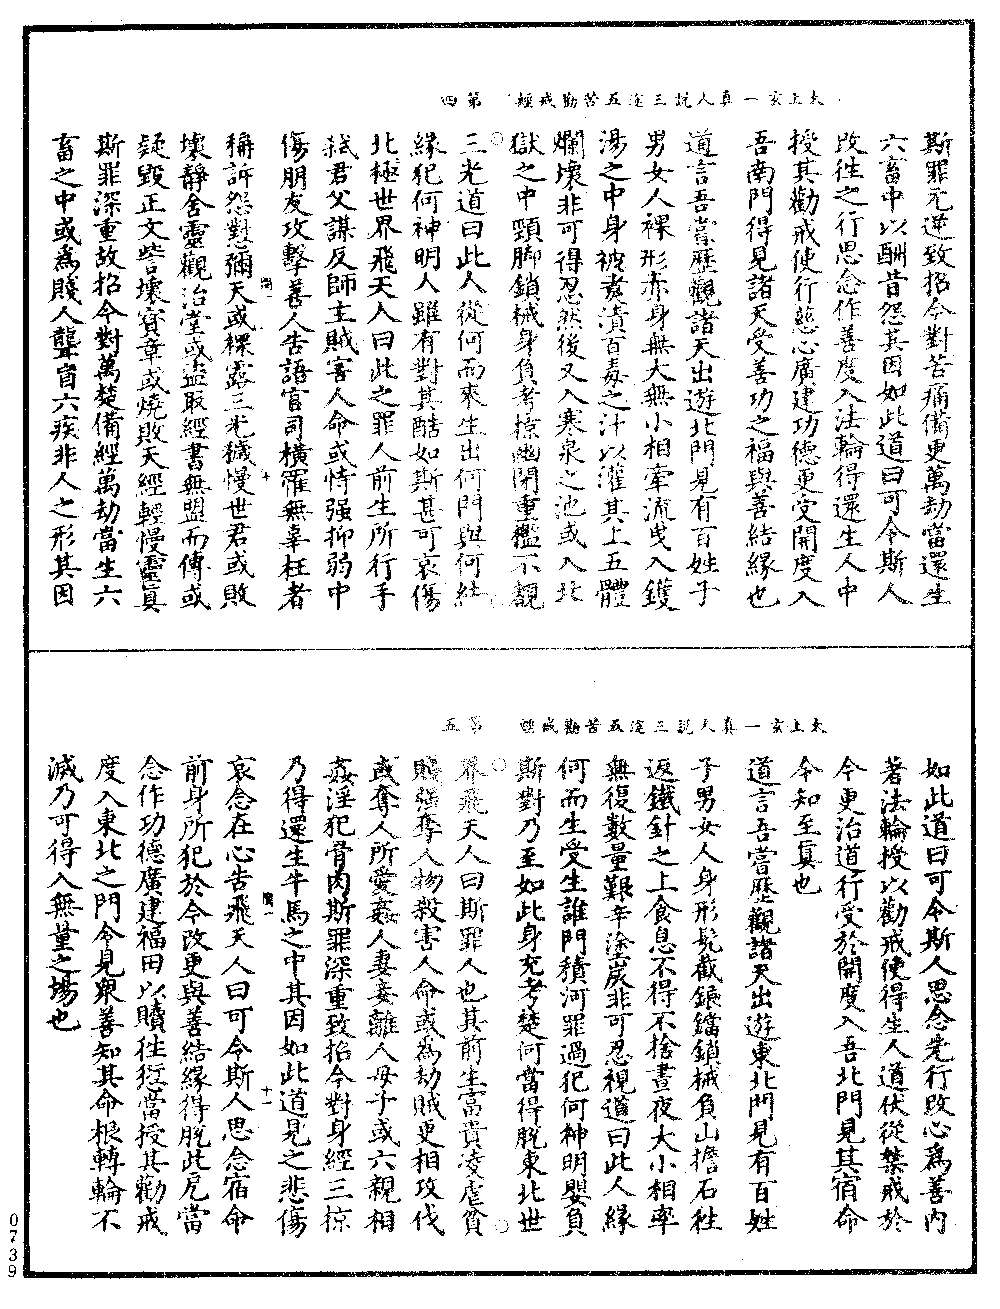 太上玄一真人說三途五苦勸戒經　第四
斯罪元逆致招今對苦痛備更萬劫當還生
六畜中以酬昔怨其因如此道曰可令斯人
改往之行思念作善度入法輪得還生人中
授其勸戒使行慈心廣建功德更受開度入
吾南門得見諸天受善功之福與善結緣也
道言吾嘗歷觀諸天出遊北門見有百姓子
男女人裸形赤身無大無小相牽流曳入鑊
湯之中身被煮漬百毒之汁以灌其上五體
爛壞非可得忍然後又入寒泉之池或入北
獄之中頸脚鎖械身負考掠幽閉重檻不覩
三光道曰此人從何而來生出何門與何結
緣犯何神明人雖有對其酷如斯甚可哀傷
北極世界飛天人曰此之罪人前生所行手
弒君父謀反師主賊害人命或恃强抑弱中
傷朋友攻擊善人告語官司橫羅無辜枉者
稱訴怨對彌天或裸露三光穢慢世君或敗
閒一　十
壞靜舍靈觀治堂或盜取經書無盟而傳或
疑毀正文呰壞寶章或燒敗天經輕慢靈真
斯罪深重故招今對萬楚備經萬劫當生六
畜之中或為賤人聾盲六疾非人之形其因
太上玄一真人說三途五苦勸戒經　第五
如此道曰可令斯人思念先行改心為善內
著法輪授以勸戒使得生人道伏從禁戒於
今更治道行受於開度入吾北門見其宿命
令知至真也
道言吾嘗歷觀諸天出遊東北門見有百姓
子男女人身形髡截鋃鐺鎖械負山擔石往
返鐵針之上食息不得不捨晝夜大小相牽
無復數量艱辛塗炭非可忍視道曰此人緣
何而生受生誰門積河罪過犯何神明嬰負
斯對乃至如此身充考楚何當得脫東北世
界飛天人曰斯罪人也其前生富貴凌虐貧
賤强奪人物殺害人命或為劫賊更相攻伐
或奪人所愛姦人妻妾離人母子或六親相
姦淫犯骨肉斯罪深重致招今對身經三掠
乃得還生牛馬之中其因如此道見之悲傷
閒一　十一
哀念在心告飛天人曰可令斯人思念宿命
前身所犯於今改更與善結緣得脫此厄當
念作功德廣建福田以贖往愆當授其勸戒
度入東北之門令見眾善知其命根轉輪不
滅乃可得入無量之場也
0739